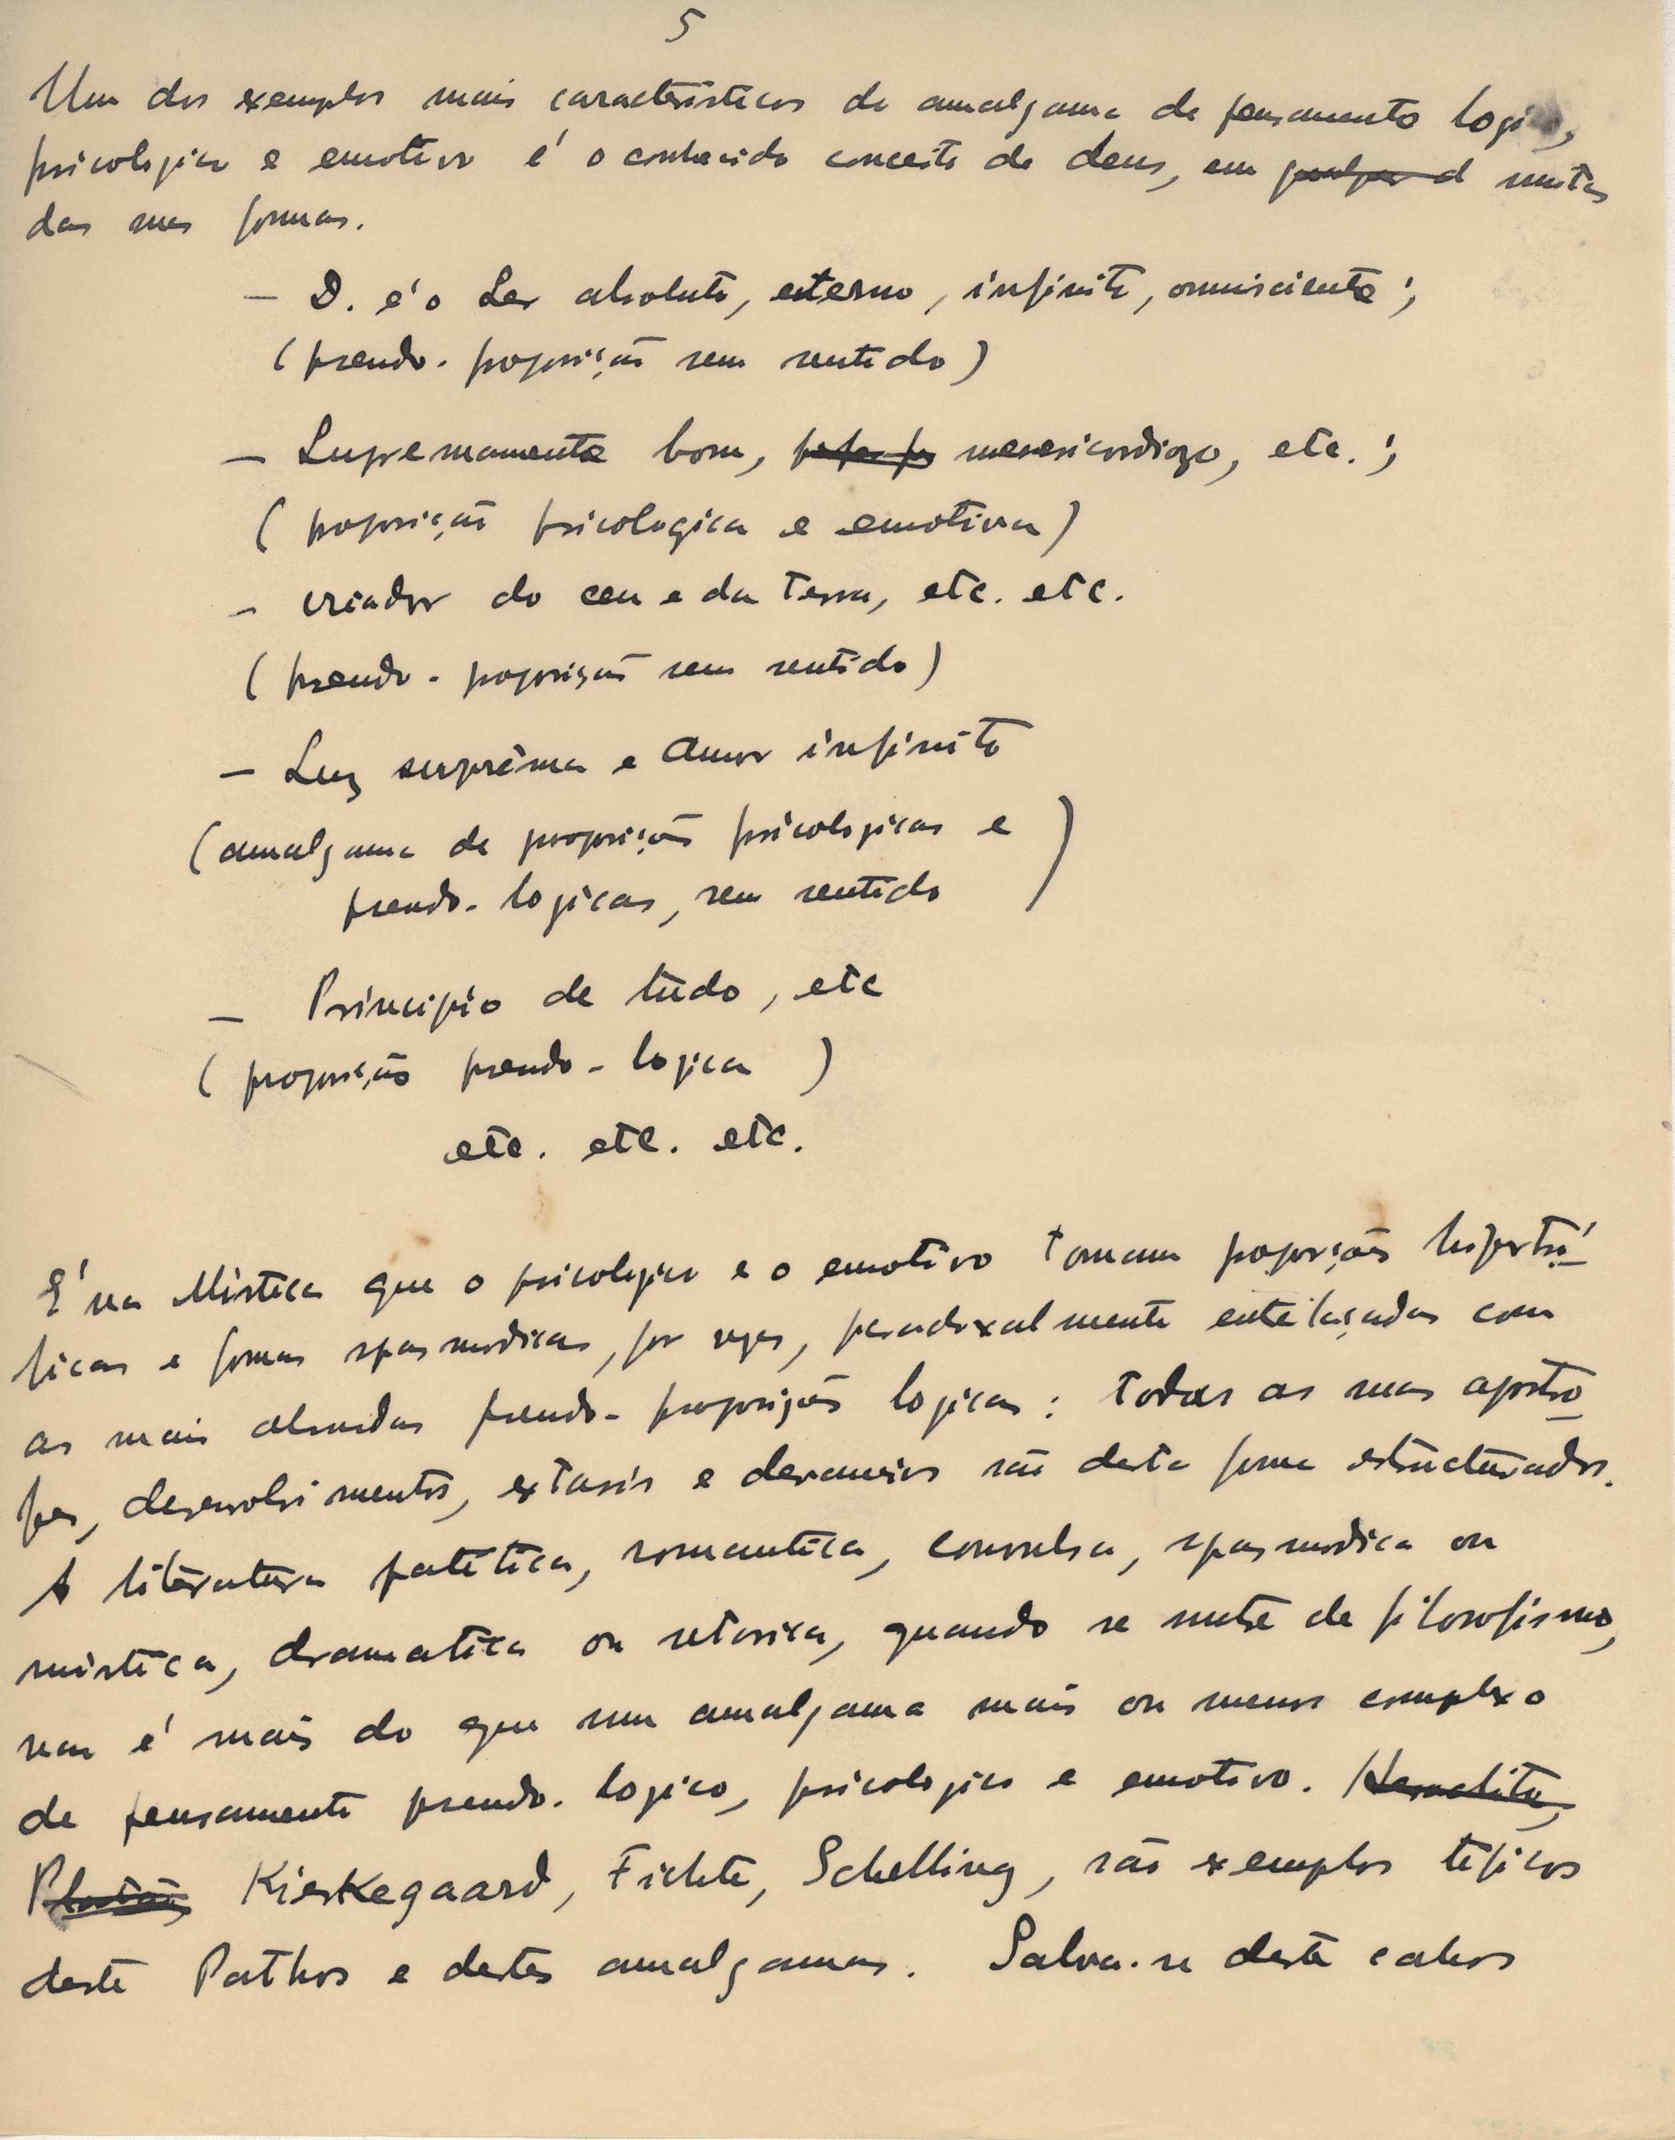 5
Um dos exemplos mais caracteristicos de amalgama de pensamento logico,
psicologico e emotivo é o conhecido conceito de deus, em muitas
das suas formas.
— D. é o Ser absoluto, eterno, infinito, omnisciente;
(pseudo-proposição sem sentido)
— Supremamente bom, meresicordiozo, etc.;
(proposição psicologica e emotiva)
– criador do ceu e da terra, etc. etc.
(pseudo-proposição sem sentido)
— Luz suprêma e Amor infinito
(amalgama de proposições psicologicas e
pseudo-logicas, sem sentido)
— Principio de tudo, etc
(proposição pseudo-logica)
etc. etc. etc.
É na Mistica que o psicologico e o emotivo tomam proporções hipertró-
ficas e formas spasmodicas, por vezes, paradoxalmente entelaçadas com
as mais absurdas pseudo-proposições logicas: todas as suas apostro-
fes, desenvolvimentos, extasis e devaneios são desta forma estructurados.
A literatura patética, romantica, convulsa, spasmodica ou
mistica, dramatica ou retorica, quando se mete de filosofismo,
nan é mais do que um amalgama mais ou menos complexo
de pensamento pseudo-logico, psicologico e emotivo. Heraclito,
Platão, Kierkegaard, Fichte, Schelling, são exemplos tipicos
deste Pathos e destes amalgamas. Salva-se deste cahos